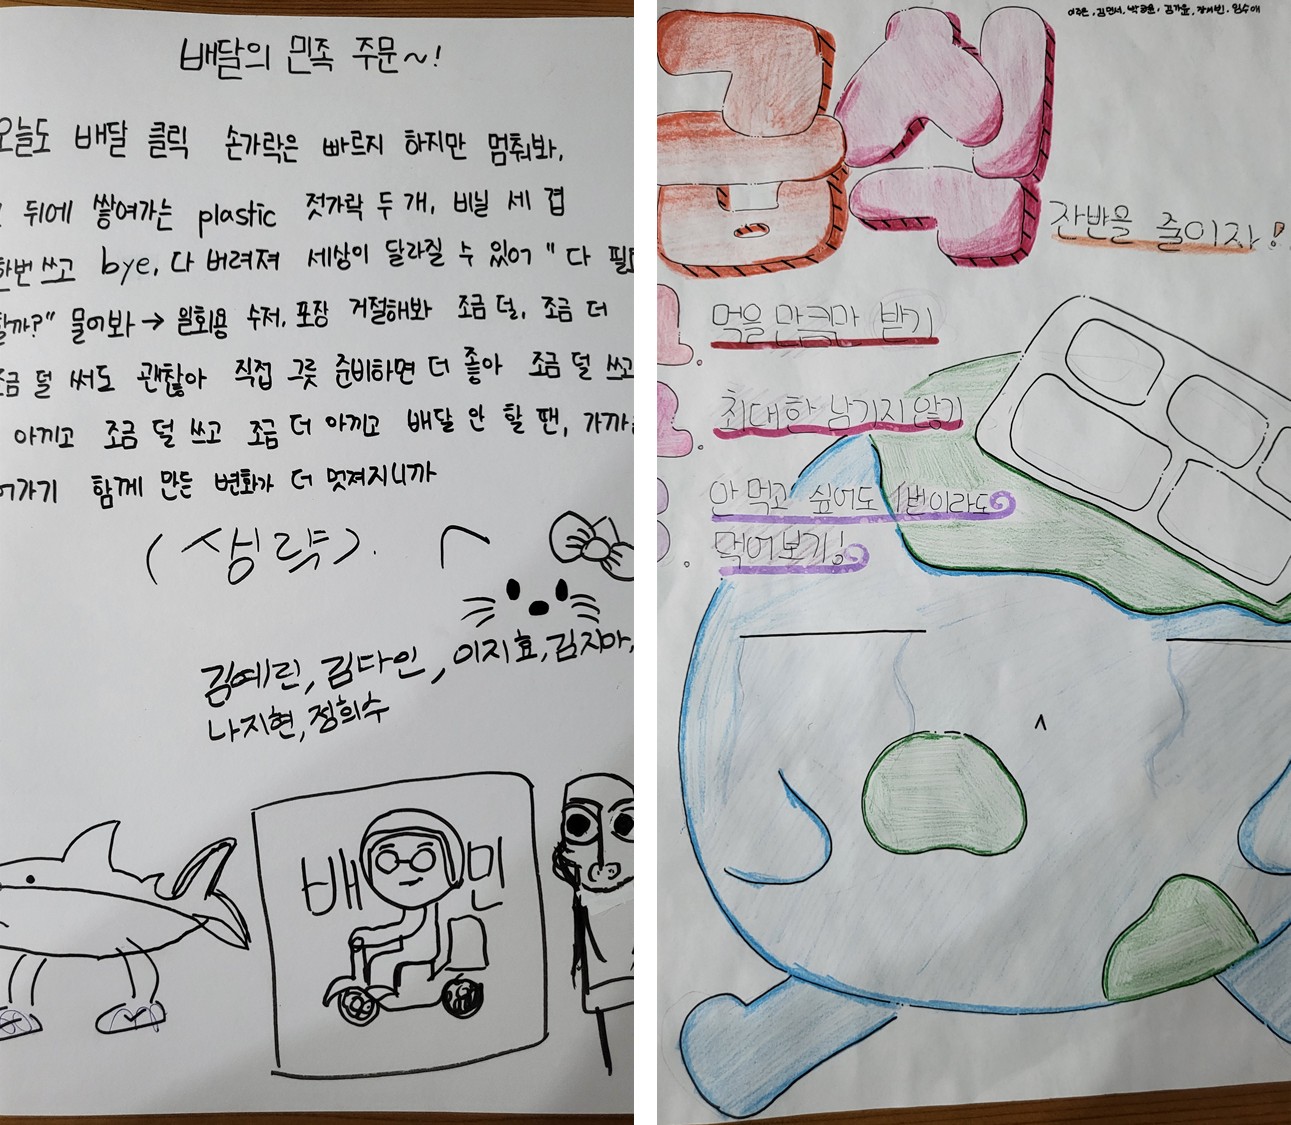 배달의 민족 주문~!
오늘도 배달 클릭 손가락은 빠르지 하지만 멈춰봐,
뒤에 쌓여가는 plastic 젓가락 두 개, 비닐 세 겹
한번 쓰고 bye, 다 버려져 세상이 달라질 수 있어 "다
물어봐 → 일회용 수저, 포장 거절해봐 조금 덜, 조금 더
덜 써도 괜찮아 직접 그릇 준비하면 더 좋아 조금 덜 쓰고
아끼고 조금 덜 쓰고 조금 더 아끼고 배달 안 할 땐,
함께 만든 변화가 더 멋져지니까
(생략).
김예린, 김다인, 이지효, 김지아,
나지현, 정희수
배민
급식
잔반을 줄이자!
먹을 만큼만 받기
최대한 남기지 않기
안 먹고 싶어도 1번이라도
먹어보기!